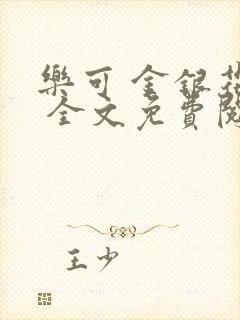 樂可 金銀花
全文免費閱
王少